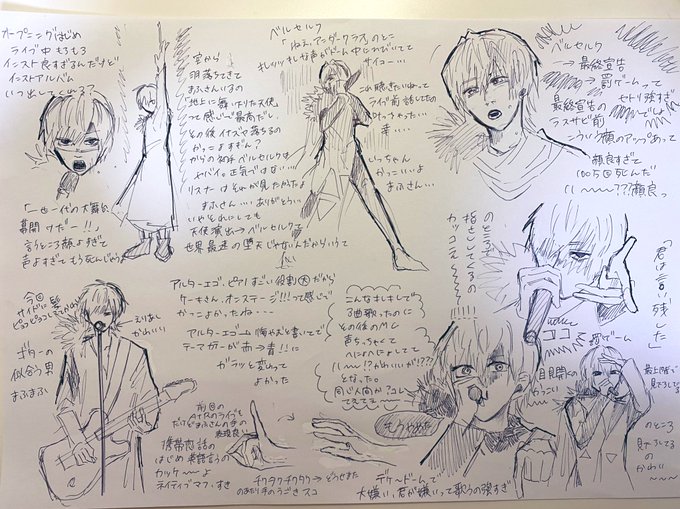 オープニングはじめ
ライブ中もろもろ
インスト良すぎるんだけど
インストアルバム
いつ出してくれる?
「一世一代の大舞台
幕開けだー!!」
言うところ顔よすぎて
声よすぎてもう死んじゃう
空から
羽落ちてきて
まふさんいるの
地上に舞いおりた天使
って感じで最高だし
その後イナズマ落ちるの
かっこよすぎん?
からの初手ベルセルクは
ヤバイよ正気ではない…!!
リスナーはそれが見たかたよ
まふさん…ありがとう…
いやそれにしても
天使演出→ベルセルクって
世界最速の堕天じゃないんだからいうて
ベルセルク
「ねえ、アンダークラス」のとこ
キレッキレな声がドーム中にひびいてて
サイコー…
これ聴きたいねって
ライブ前話してたの
叶っちゃったい
幸…い…
いっちゃん
かっこいいよ
まふさん…
ベルセルク
→最終宣告
→罰ゲームって
セトリ強すぎ
でしょ
最終宣告の
ラスサビ前
こういう顔のアップあって
顔良すぎて
100万回死んだ
!!~~???顔良っ
「君は言い残した」
のところで
指さしてくるの
カッコえ~
今回
サイドに髪
ピョコピョコしてるかわいい
えりあし
かわいい
ギターの
似合う男
まふまふ
アルターエゴ、ピアノすごい役割大だから
ケーキさん、オンステージ!!!って感じで
かっこよかったね・・・
テーマカラーが赤→青!!に
ガラッと変わって
よかった
こんなキレキレで
3曲歌ったのに
その後のMC
声ちっちゃくて
へにょへにょしてて
!!~~!?かわいいが!???
となった。
同じ人間か?コレ
もうやめた
ココ
罰ゲーム
目見開くの
かっこいい
最上階まで
見下ろしてる
のところ
見下ろしてるの
かわいい
~~
前回の
まふさんの手の
表現良し
携帯恋話の
はじめ英語言うの
カッケ~~よ
ネイティブマフ、すき
チクタクチクタク→どうせまた
のあたり手のうごきスコ
デケ~ドームで
大嫌い、君が嫌いって歌うの強すぎ